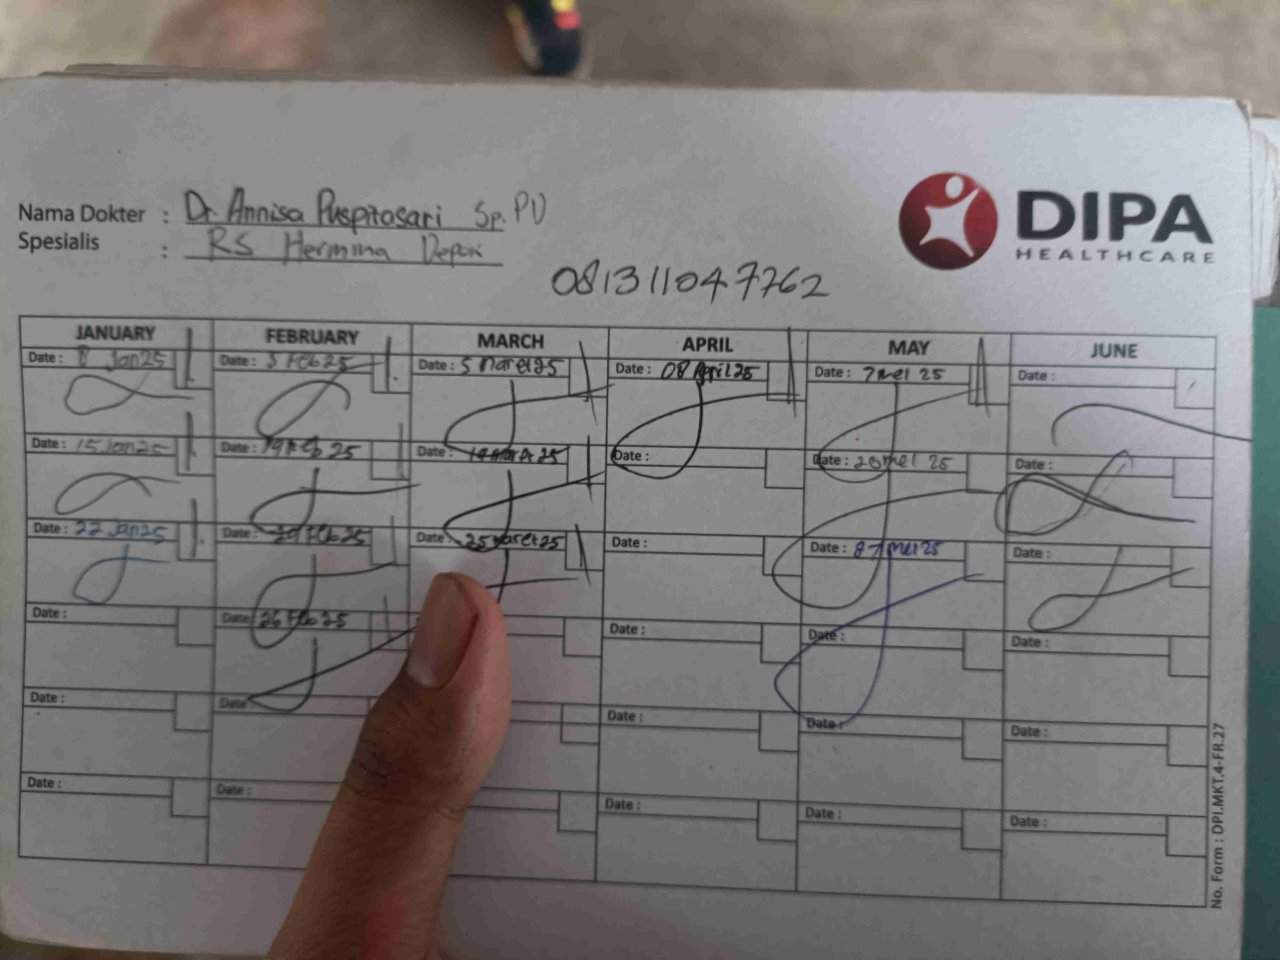 Nama Dokter : Dr. Annisa Puspitasari Sp. PD
Spesialis : RS Hermina Depok
081311047762
DIPA
HEALTHCARE
JANUARY FEBRUARY MARCH APRIL MAY JUNE
Date : 8 Jan 25 Date : 3 Feb 25 Date : 5 Maret 25 Date : 08 April 25 Date : 7 Mei 25 Date :
Date : 15 Jan 25 Date : 19 Feb 25 Date : 25 Date : Date : 20 Mei 25 Date :
Date : 22 Jan 25 Date : Feb 25 Date : 25 Maret 25 Date : Date : 27 Mei 25 Date :
Date : Date : 26 Feb 25 Date : Date : Date :
Date : Date : Date : Date : Date :
Date : Date : Date : Date : Date :
No. Form : DPI.MKT.4-FR.27